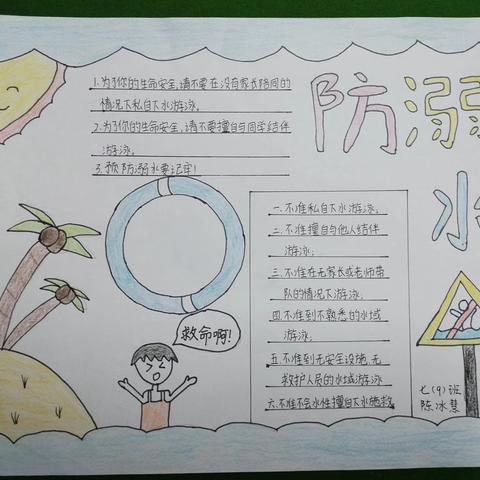 1.为了你的生命安全,请不要在没有家长陪同的
情况下私自下水游泳。
2.为了你的生命安全,请不要擅自与同学结伴
游泳。
3.预防溺水要记牢!
防溺
水
一.不准私自下水游泳;
二.不准擅自与他人结伴
游泳;
三.不准在无家长或老师带
队的情况下游泳。
四.不准到不熟悉的水域
游泳;
五.不准到无安全设施、无
救护人员的水域游泳
六.不准不会水性擅自下水施救
救命啊!
七(9)班
陈冰慧